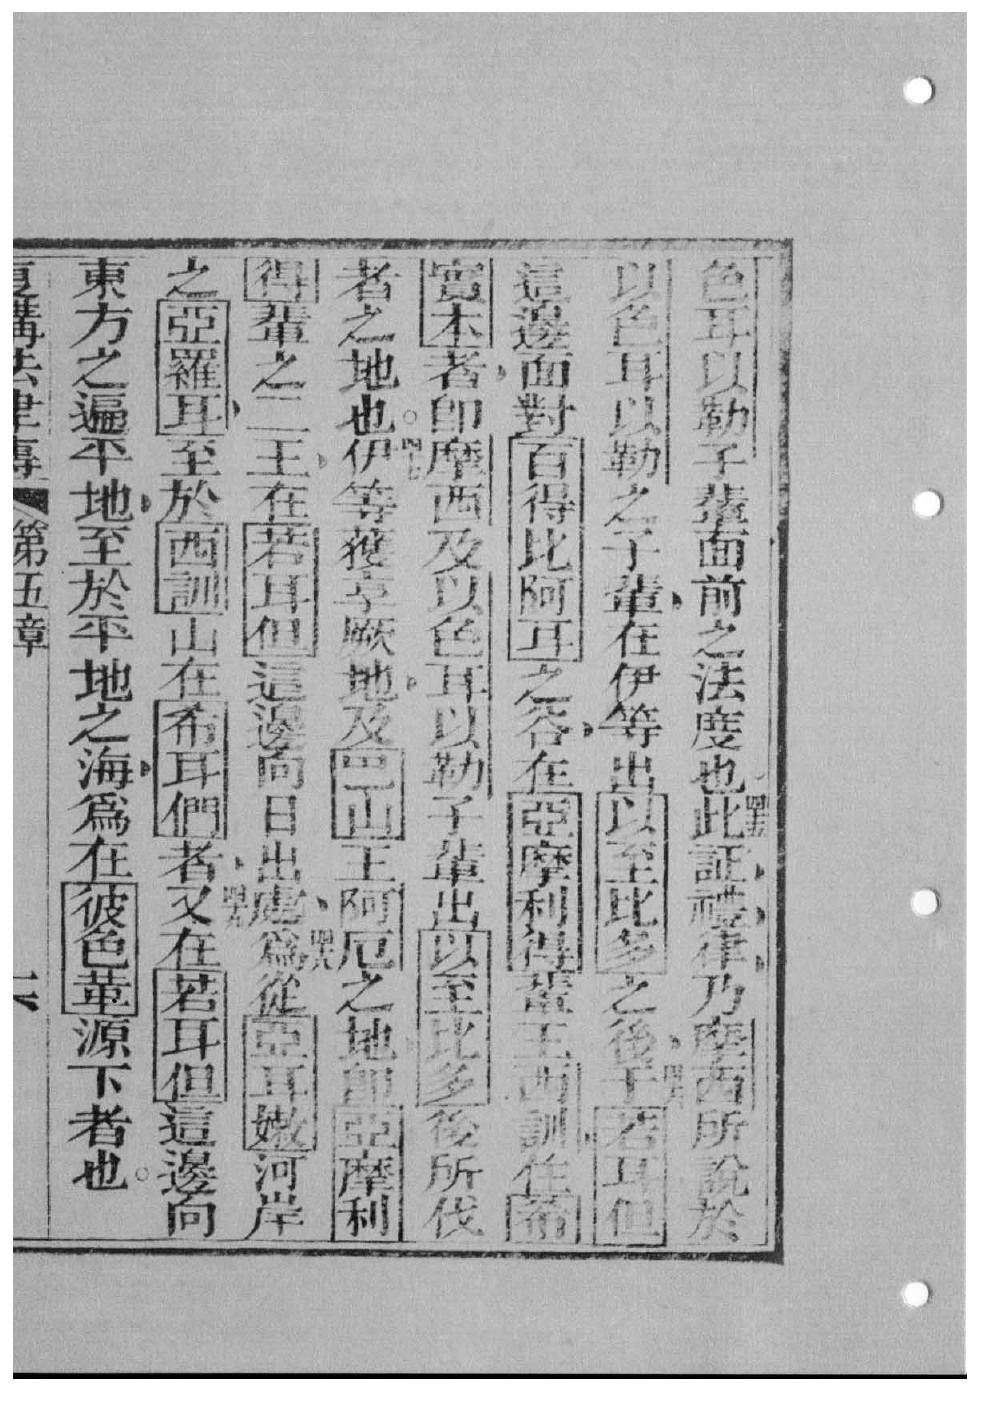 色耳以勒子輩面前之法度也四五此証禮律乃摩西所說於
以色耳以勒之子輩在伊等出以至比多之後四六于若耳但
這邊面對百得比阿耳之谷在亞摩利得輩王西訓住希
實本者卽摩西及以色耳以勒子輩出以至比多後所伐
者之地也四七伊等獲享厥地及巴山王阿厄之地卽亞摩利
得輩之二王在若耳但這邊向日出處四八爲從亞耳嫩河岸
之亞羅耳至於西訓山在希耳們者四九又在若耳但這邊向
東方之遍平地至於平地之海爲在彼色茧源下者也
復講法律專 第五章 十六